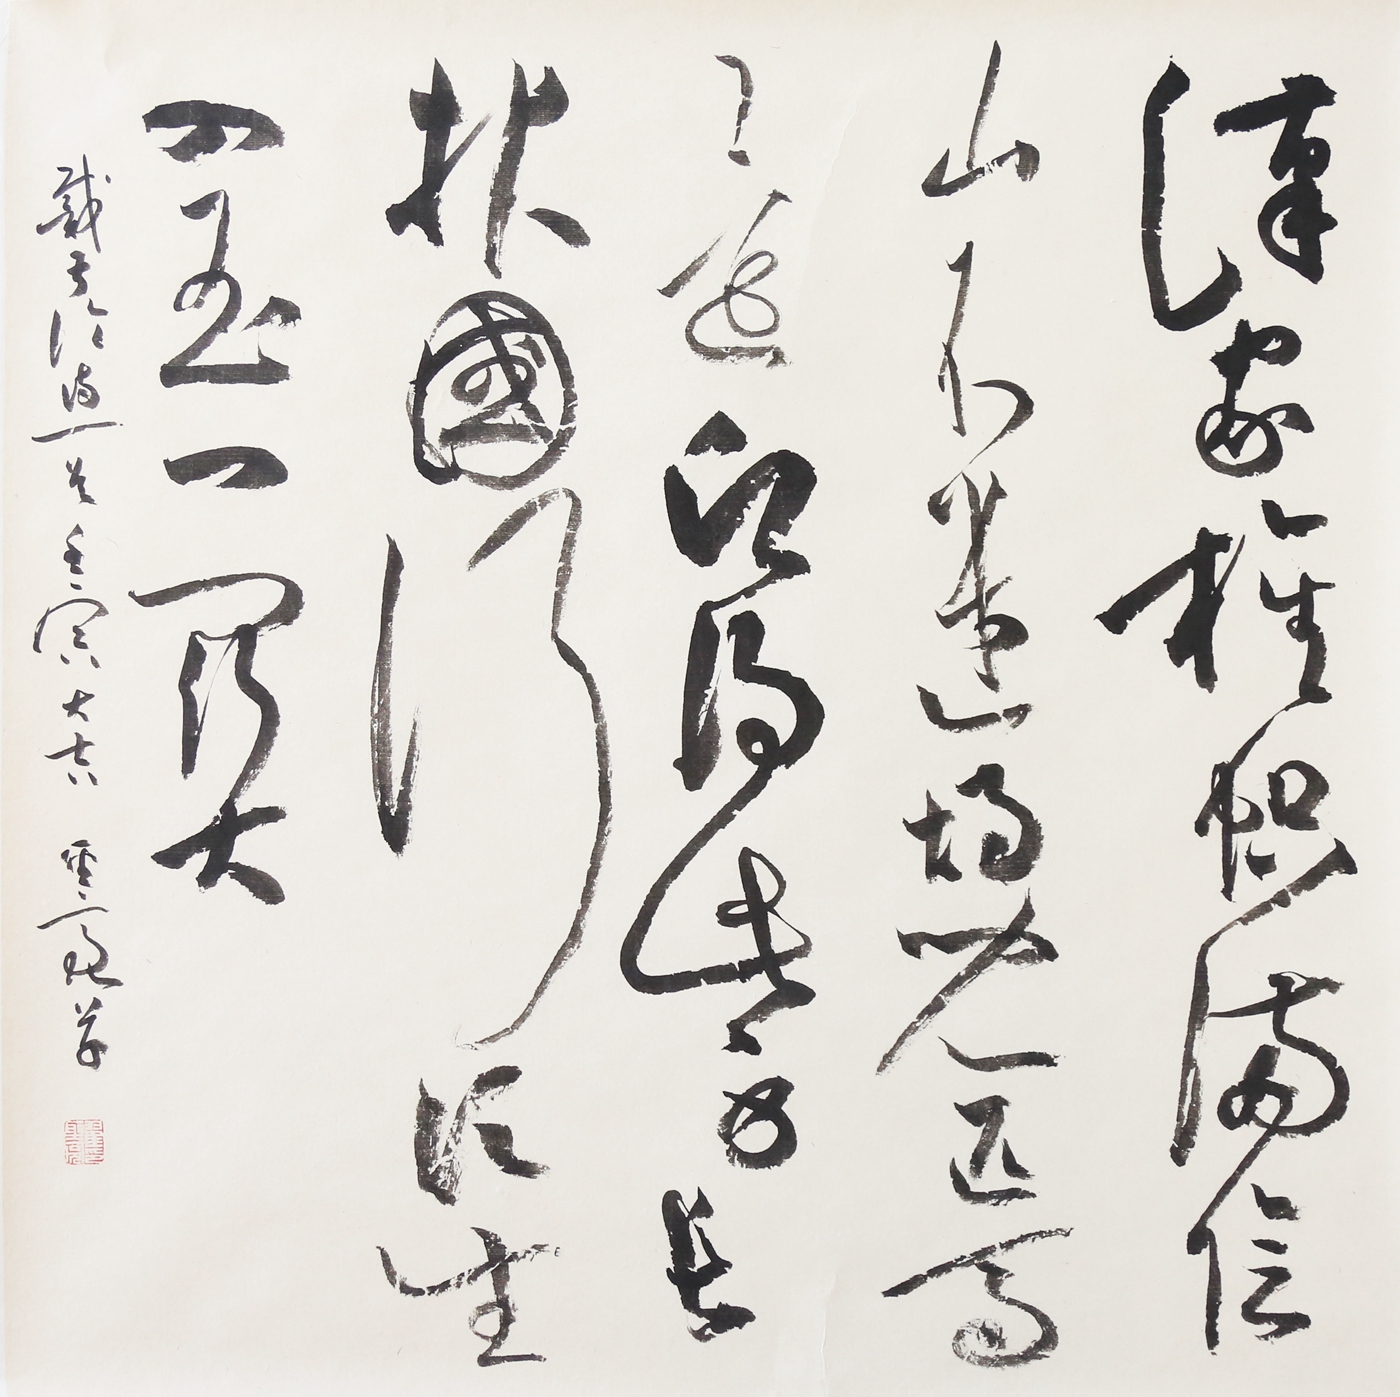 漢家旌幟滿陰
山不遣胡兒匹馬
還願得此身長
報國何須生
入玉門關
戴叔倫詩一首壬寅大吉 雲